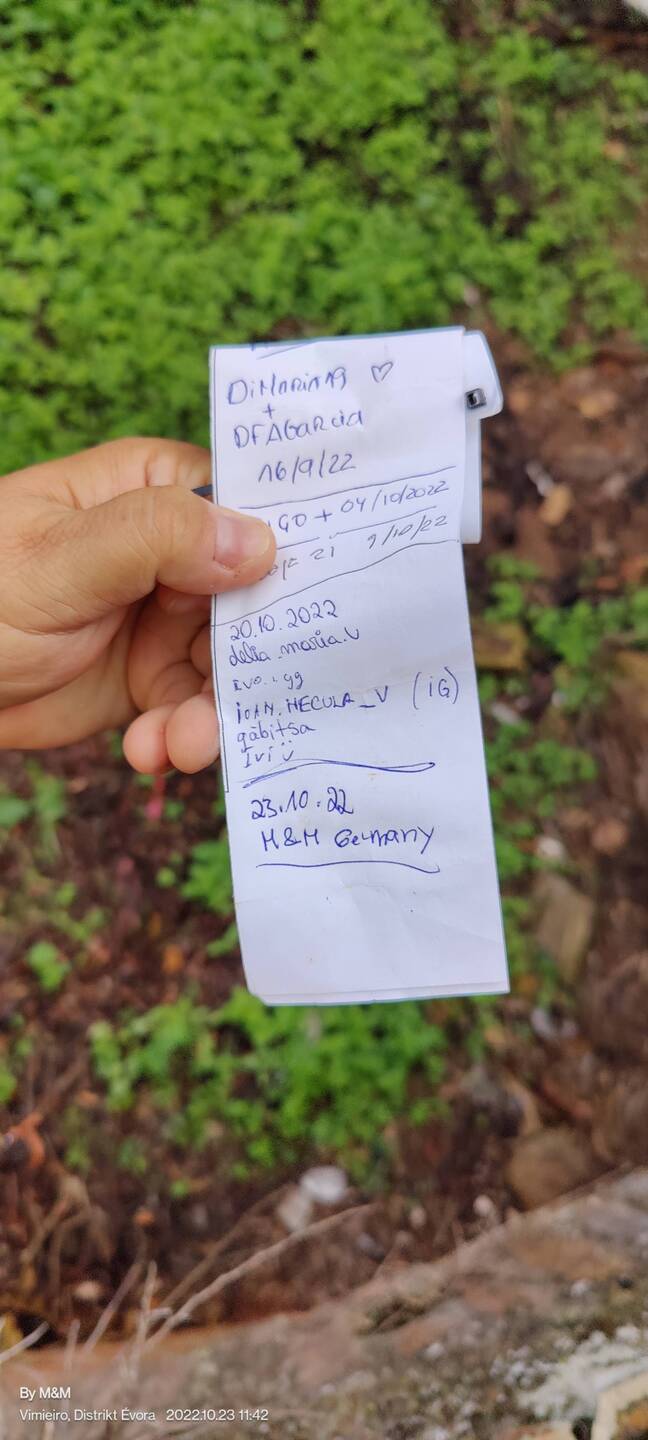 DiMaria79 ♡
+
DFAGarcia
16/9/22
GO + 04/10/2022
21 9/10/22
20.10.2022
delia.maria.v
IOAN.NECULA_V (iG)
gäbitsa
Ivi
23.10.22
M&M Germany
By M&M
Vimieiro, Distrikt Évora 2022.10.23 11:42